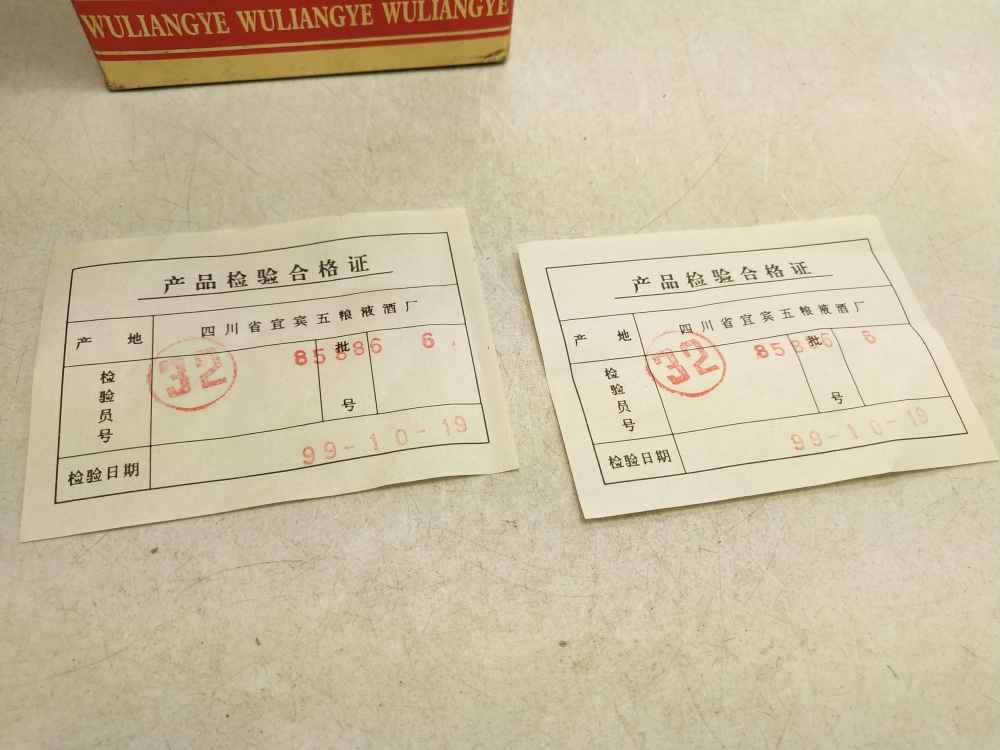 WULIANGYE WULIANGYE WULIANGYE
产品检验合格证
产地 四川省宜宾五粮液酒厂
检验员号 32 批号 85886 6
检验日期 99-10-19
产品检验合格证
产地 四川省宜宾五粮液酒厂
检验员号 32 批号 85886 6
检验日期 99-10-19